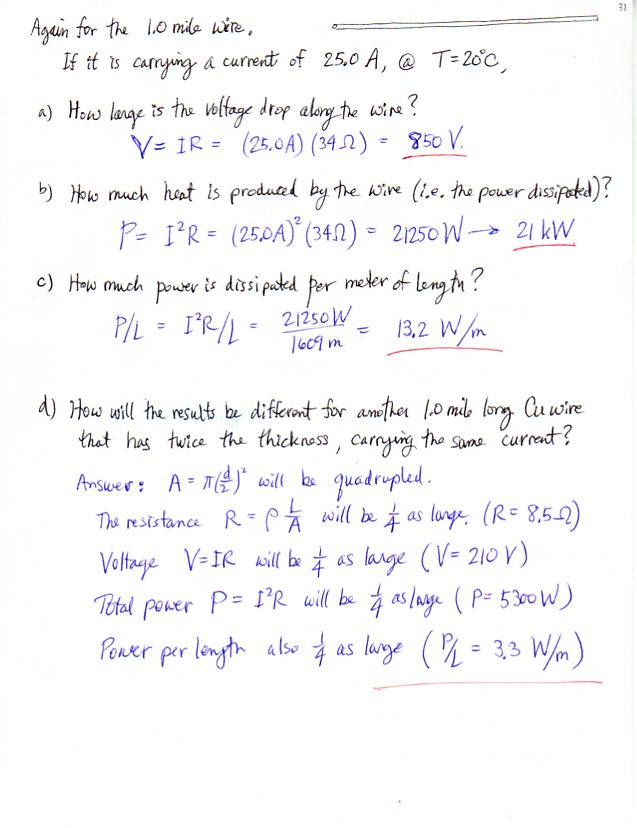 31
Again for the 1.0 mile wire.
If it is carrying a current of 25.0 A, @ T=20°C,
a) How large is the voltage drop along the wire?
V = IR = (25.0A)(34Ω) = 850 V.
b) How much heat is produced by the wire (i.e. the power dissipated)?
P = I²R = (25.0A)²(34Ω) = 21250 W → 21 kW
c) How much power is dissipated per meter of length?
P/L = I²R/L = 21250W/1609 m = 13.2 W/m
d) How will the results be different for another 1.0 mile long Cu wire
that has twice the thickness, carrying the same current?
Answer: A = π(d/2)² will be quadrupled.
The resistance R = ρ L/A will be 1/4 as large. (R = 8.5Ω)
Voltage V=IR will be 1/4 as large (V = 210 V)
Total power P = I²R will be 1/4 as large (P = 5300W)
Power per length also 1/4 as large (P/L = 3.3 W/m)